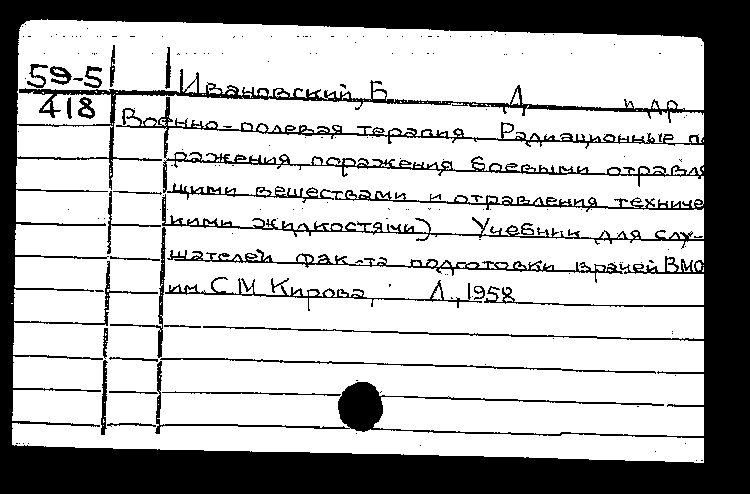 59-5
418
Ивановский, Б Д и др
Военно-полевая терапия. Радиационные по
ражения, поражения боевыми отравля
щими веществами и отравления техниче
кими жидкостями) Учебник для слу-
шателей фак-та подготовки врачей ВМО
им. С М Кирова, Л., 1958